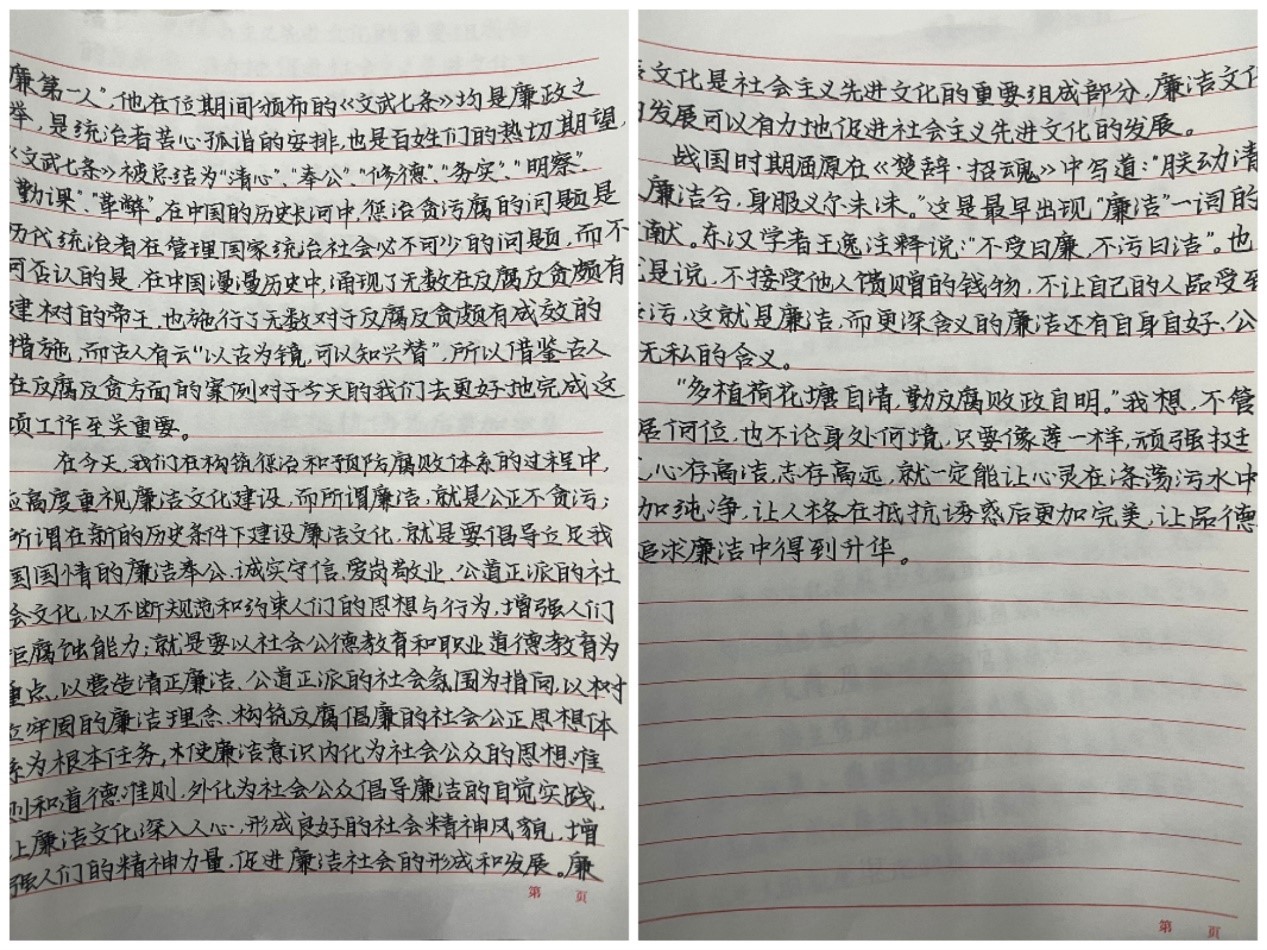 廉第一人”,他在位期间颁布的《文武七条》均是廉政之
举,是统治者苦心孤诣的安排,也是百姓们的热切期望,
《文武七条》被总结为“清心”、“奉公”、“修德”、“务实”、“明察”、
“勤课”、“革弊”。在中国的历史长河中,惩治贪污腐的问题是
历代统治者在管理国家统治社会必不可少的问题,而不
可否认的是,在中国漫漫历史中,涌现了无数在反腐反贪颇有
建树的帝王,也施行了无数对于反腐反贪颇有成效的
措施,而古人有云“以古为镜,可以知兴替”,所以借鉴古人
在反腐反贪方面的案例对于今天的我们去更好地完成这
项工作至关重要。
在今天,我们在构筑惩治和预防腐败体系的过程中,
应高度重视廉洁文化建设,而所谓廉洁,就是公正不贪污;
所谓在新的历史条件下建设廉洁文化,就是要倡导立足我
国国情的廉洁奉公、诚实守信、爱岗敬业、公道正派的社
会文化,以不断规范和约束人们的思想与行为,增强人们
拒腐蚀能力;就是要以社会公德教育和职业道德教育为
重点,以营造清正廉洁、公道正派的社会氛围为指向,以树
立牢固的廉洁理念、构筑反腐倡廉的社会公正思想体
系为根本任务,使廉洁意识内化为社会公众的思想准
则和道德准则,外化为社会公众倡导廉洁的自觉实践,
让廉洁文化深入人心,形成良好的社会精神风貌,增
强人们的精神力量,促进廉洁社会的形成和发展。廉
第 页
洁文化是社会主义先进文化的重要组成部分,廉洁文化
的发展可以有力地促进社会主义先进文化的发展。
战国时期屈原在《楚辞·招魂》中写道:“朕幼清
以廉洁兮,身服义尔未沫。”这是最早出现“廉洁”一词的
文献。东汉学者王逸注释说:“不受曰廉,不污曰洁”。也
就是说,不接受他人馈赠的钱物,不让自己的人品受到
玷污,这就是廉洁,而更深含义的廉洁还有自身自好、公
无私的含义。
“多植荷花塘自清,勤反腐败政自明。”我想,不管
居何位,也不论身处何境,只要像莲一样,顽强挺廷
心存高洁,志存高远,就一定能让心灵在涤荡污水中
加纯净,让人格在抵抗诱惑后更加完美,让品德
追求廉洁中得到升华。
第 页